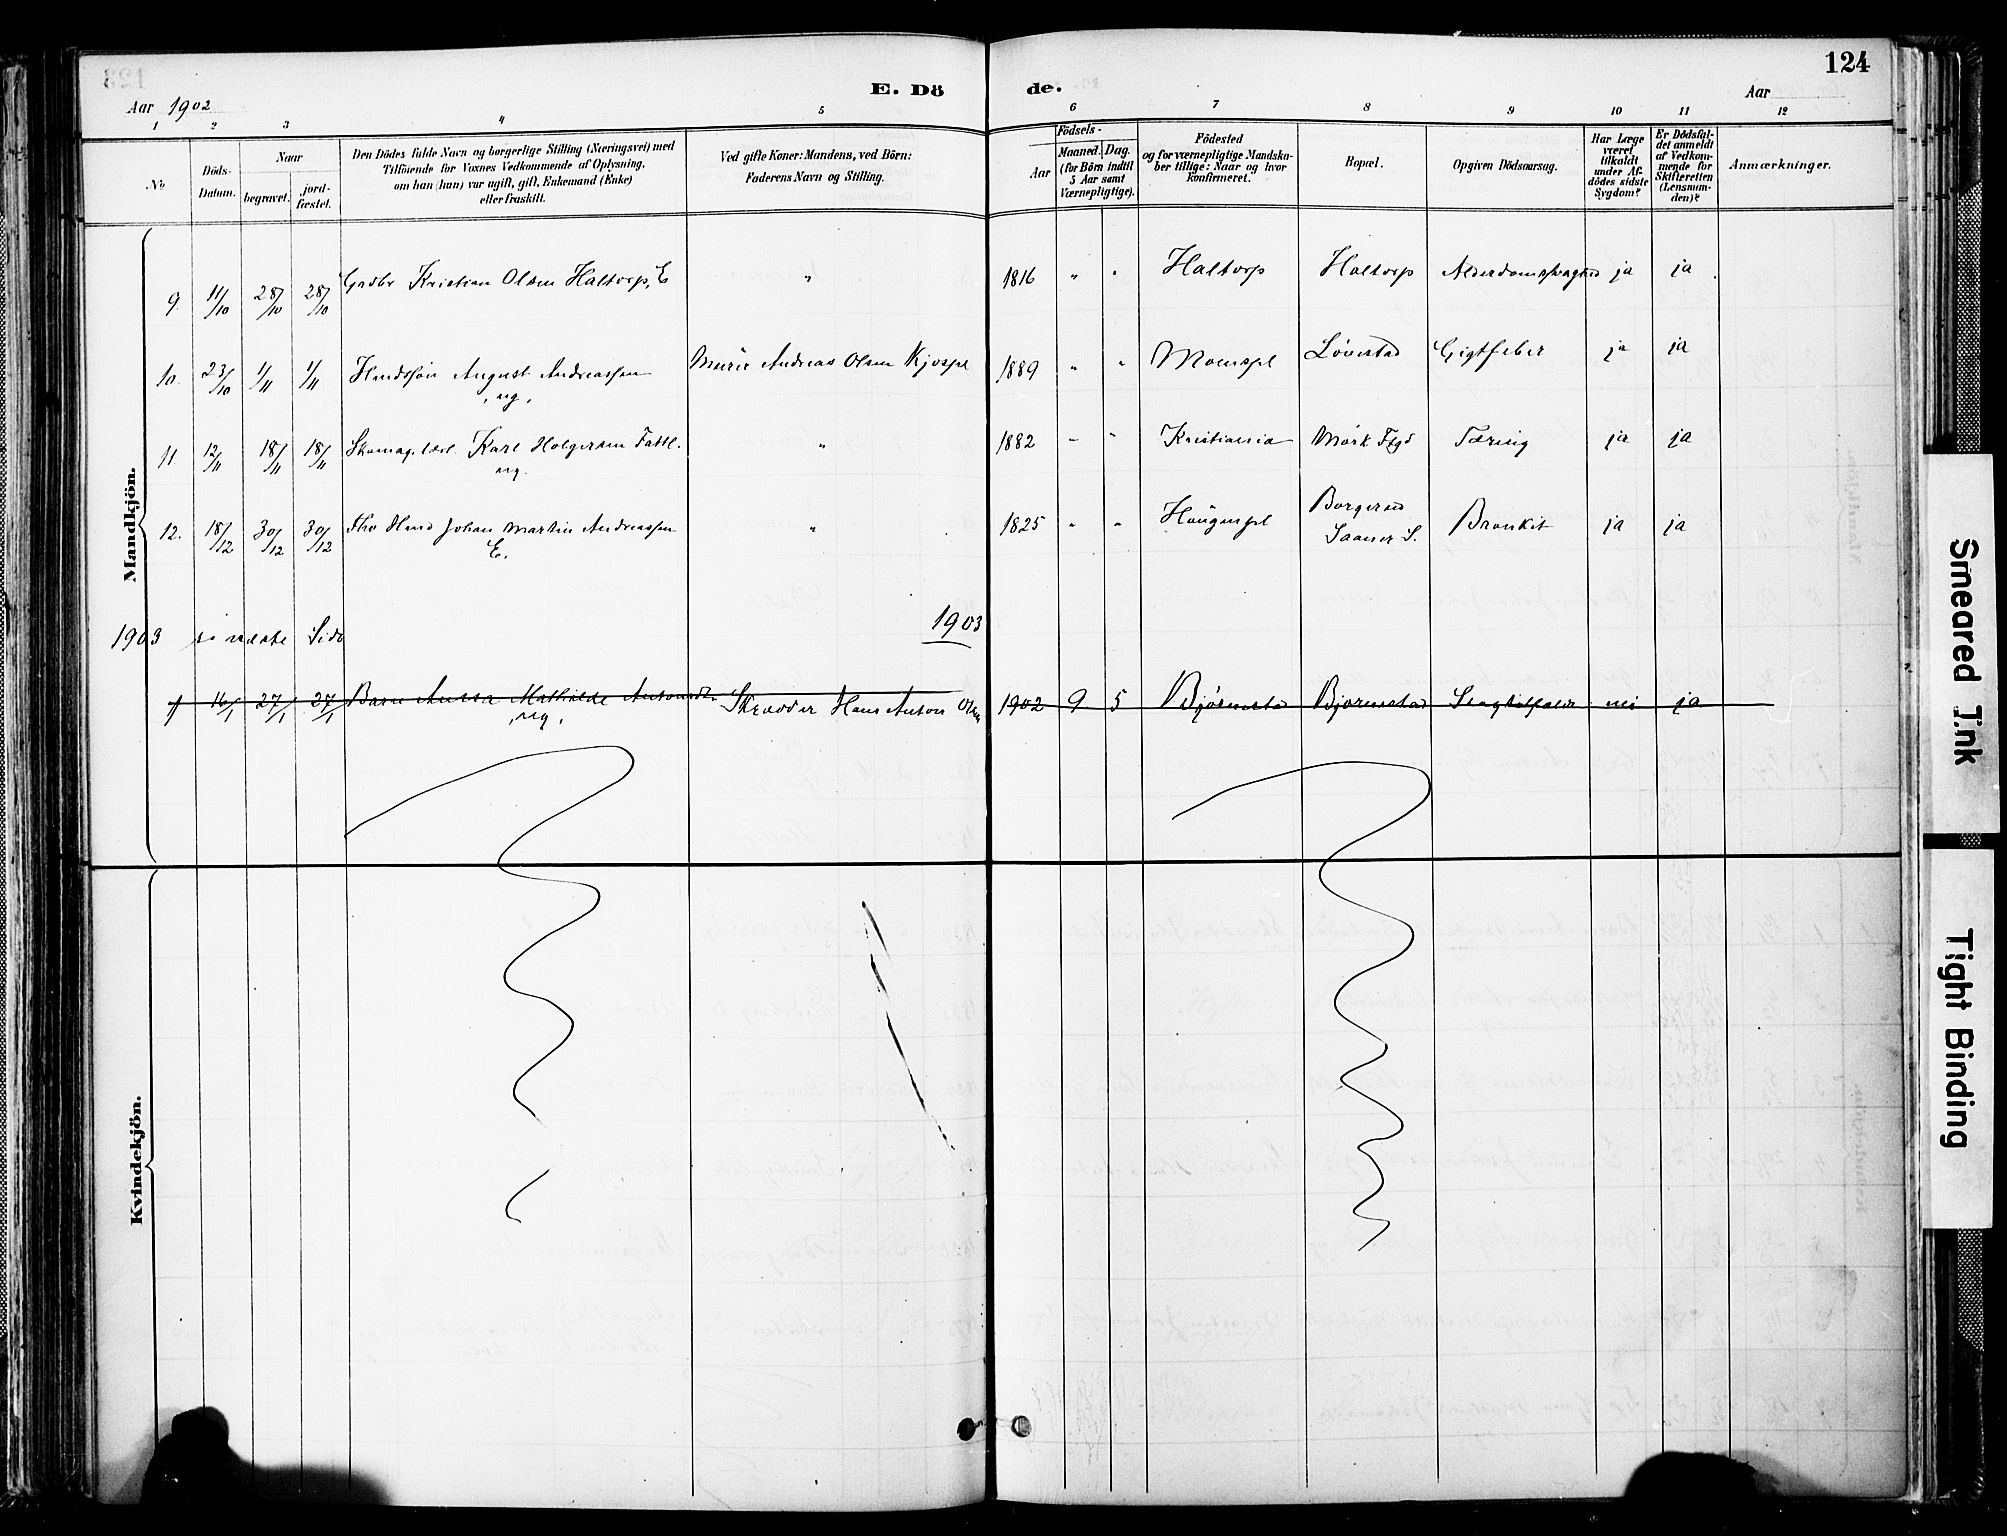 124
E. Dö de.
Aar 1902
Aar
1 2 3 4 5 6 7 8 9 10 11 12
No
Döds-Datum.
Naar
begravet.
jord-fæstet.
Den Dödes fulde Navn og borgerlige Stilling (Næringsvei) med
Tilföiende for Voxnes Vedkommende af Oplysning,
om han (hun) var ugift, gift, Enkemand (Enke)
eller fraskilt.
Ved gifte Koner: Mandens, ved Börn:
Faderens Navn og Stilling.
Födsels-
Aar
Maaned. Dag.
(for Börn indtil
5 Aar samt
Værnepligtige).
Födested
og for værnepligtige Mandska-
ber tillige: Naar og hvor
konfirmeret.
Bopæl.
Opgiven Dödsaarsag.
Har Læge
været
tilkaldt
under Af-
dödes sidste
Sygdom?
Er Dödsfal-
det anmeldt
af Vedkom-
mende for
Skifteretten
(Lensman-
den)?
Anmærkninger.
Mandkjön.
9. 11/10 28/10 28/10 Grdbr Kristian Olsen Haltorp, E " 1816 " " Haltorp Haltorp ja ja
10. 23/10 1/11 1/11 August Andreassen Murer Andreas Olsen 1889 " " Momspl Løvestad Gigtfeber ja ja
, ug,
11 12/11 18/11 18/11 Karl Holgersen Fattl. " 1882 " " Kristiania Mørk Tæring ja ja
ug.
12. 18/12 30/12 30/12 Johan Martin Andreassen " 1825 " " Haugerspl Borgerud Saaner S. Bronkit ja ja
E.
1903 se næste Side
1903
1 16/1 27/1 27/1 Barn Anna Mathilde Skrædder Hans Anton Olsen 1902 9 5 Bjørnstad Bjørnstad nei ja
, ug,
Kvindekjön.
Smeared Ink
Tight Binding